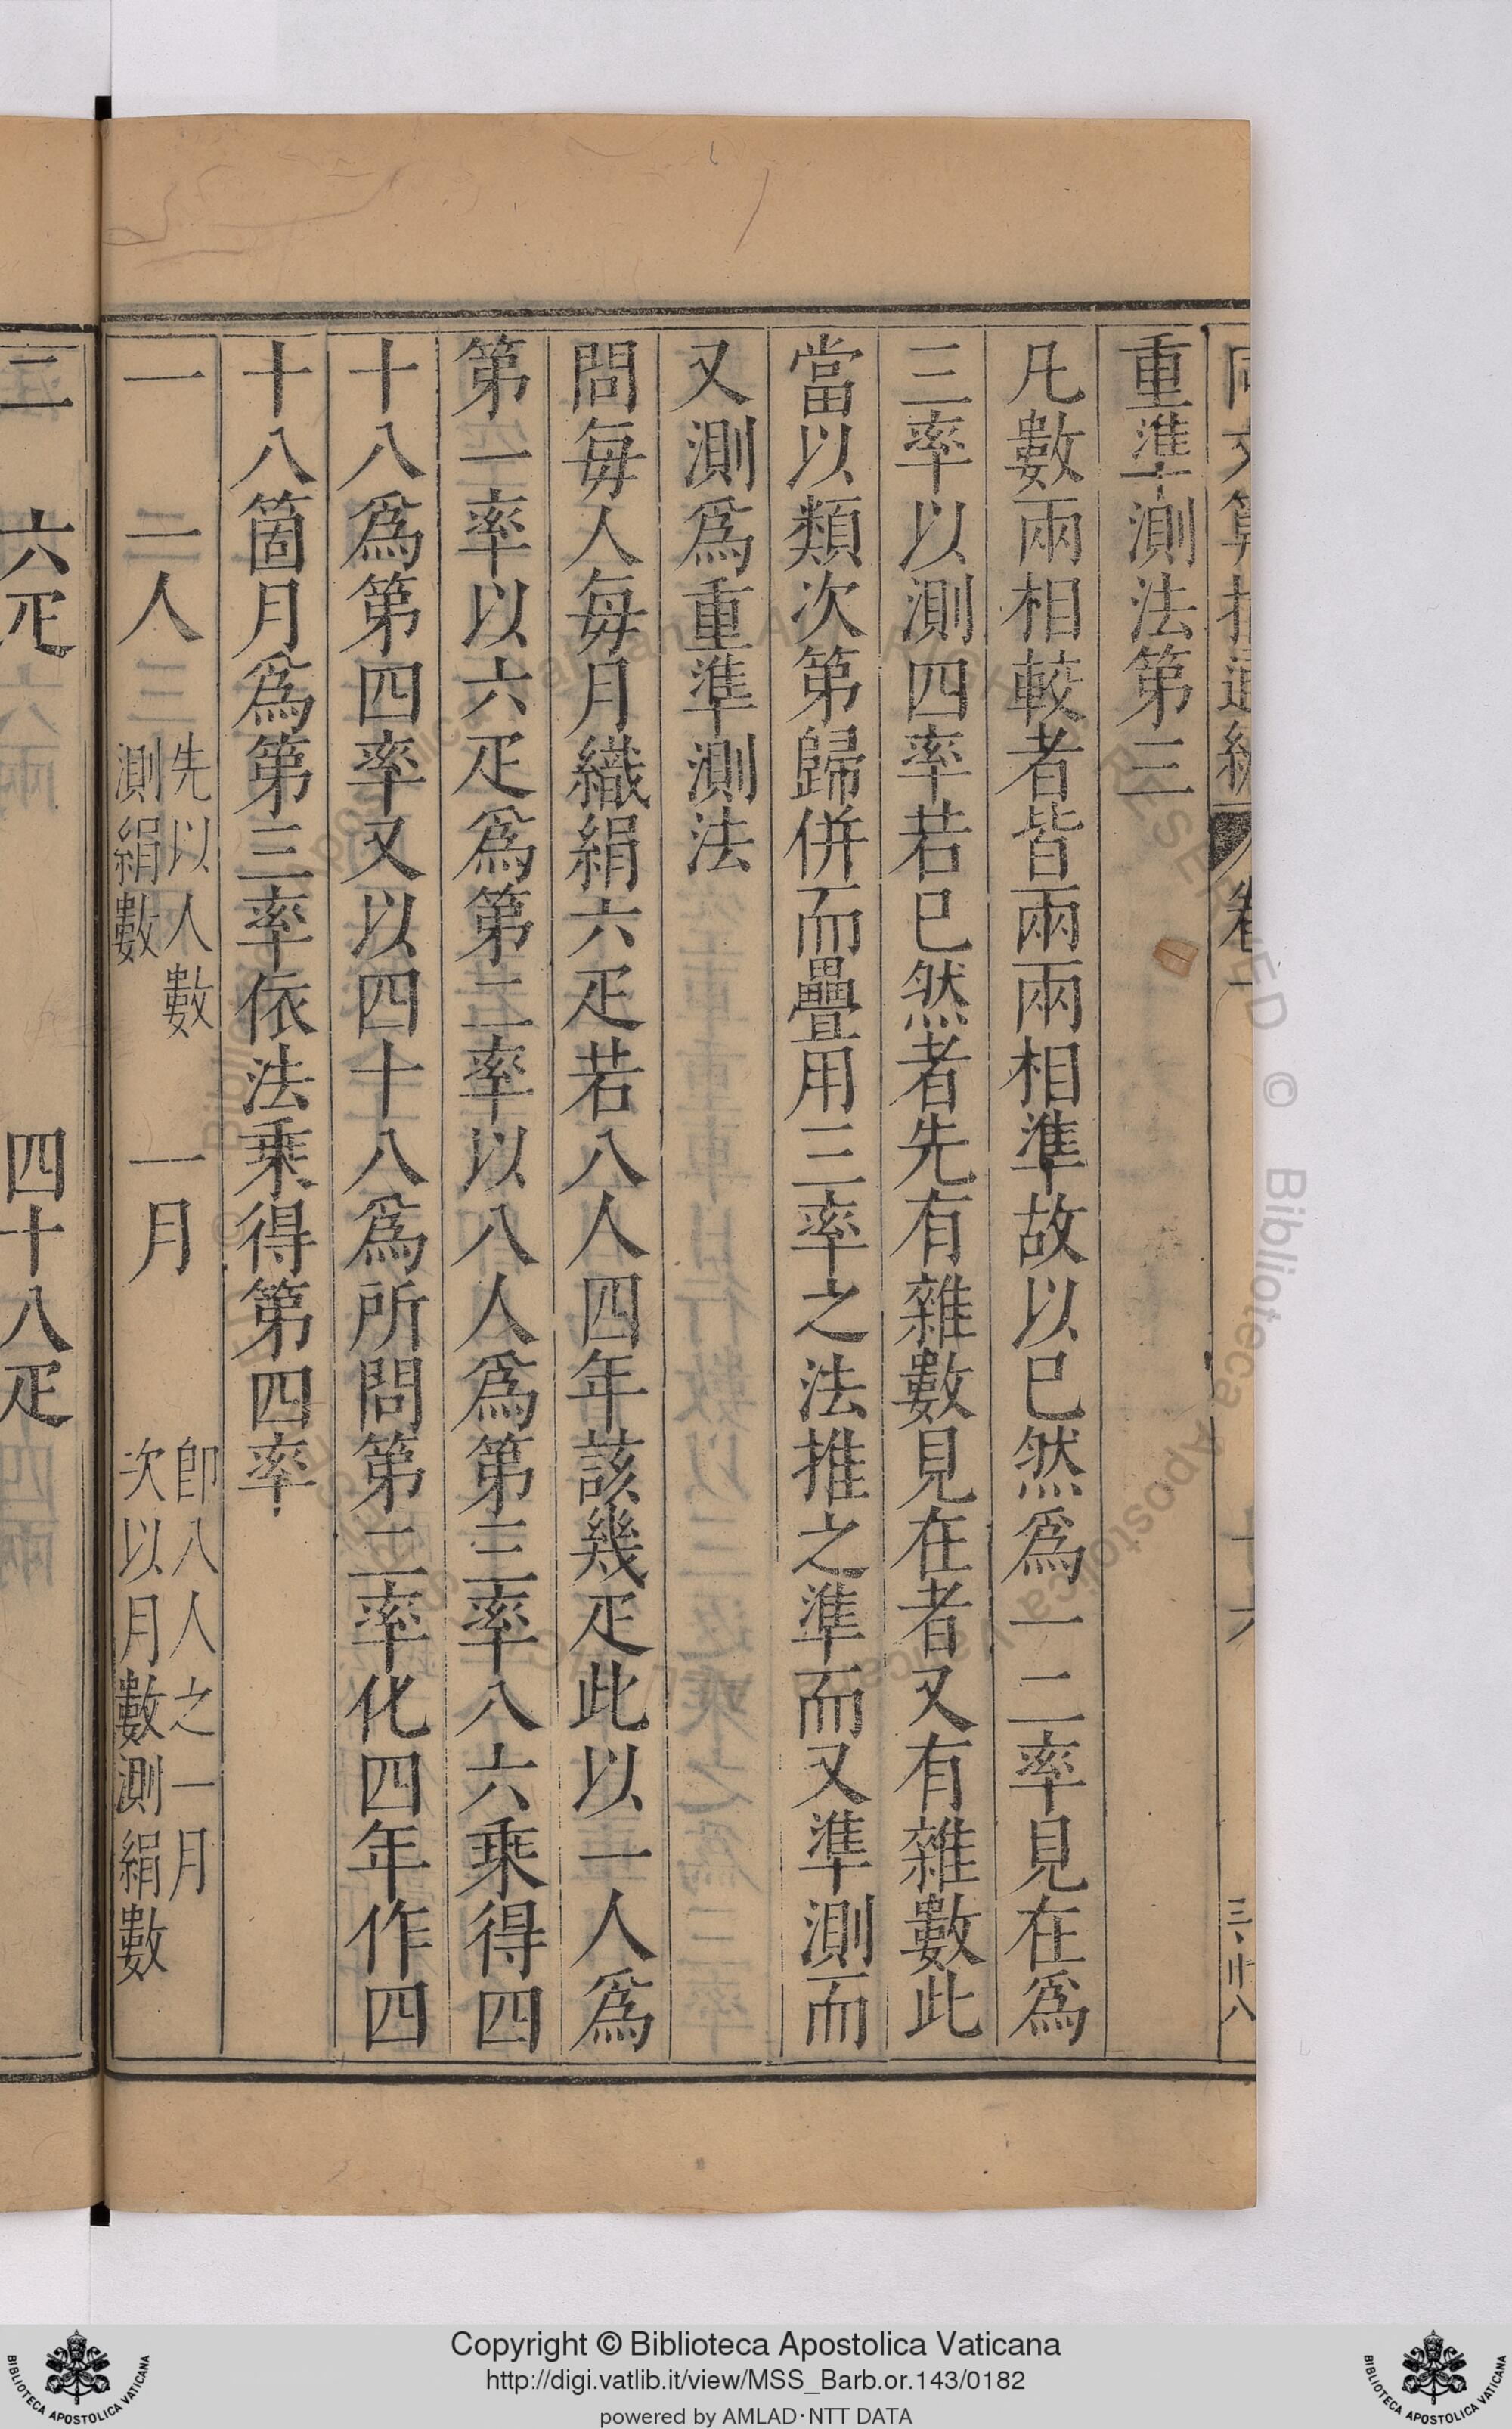 同文算指通編 卷一
重準測法第三
凡數兩相較者皆兩兩相準故以已然爲一二率見在爲
三率以測四率若已然者先有雜數見在者又有雜數此
當以類次第歸併而疊用三率之法推之準而又準測而
又測爲重準測法
問每人每月織絹六疋若八人四年該幾疋此以一人爲
第一率以六疋爲第二率以八人爲第三率八六乘得四
十八爲第四率又以四十八爲所問第二率化四年作四
十八箇月爲第三率依法乘得第四率
一 一人 先以人數測絹數 一月 卽八人之一月次以月數測絹數
二 六疋 四十八疋
Copyright © Biblioteca Apostolica Vaticana
http://digi.vatlib.it/view/MSS_Barb.or.143/0182
powered by AMLAD·NTT DATA
BIBLIOTECA APOSTOLICA VATICANA
BIBLIOTECA APOSTOLICA VATICANA